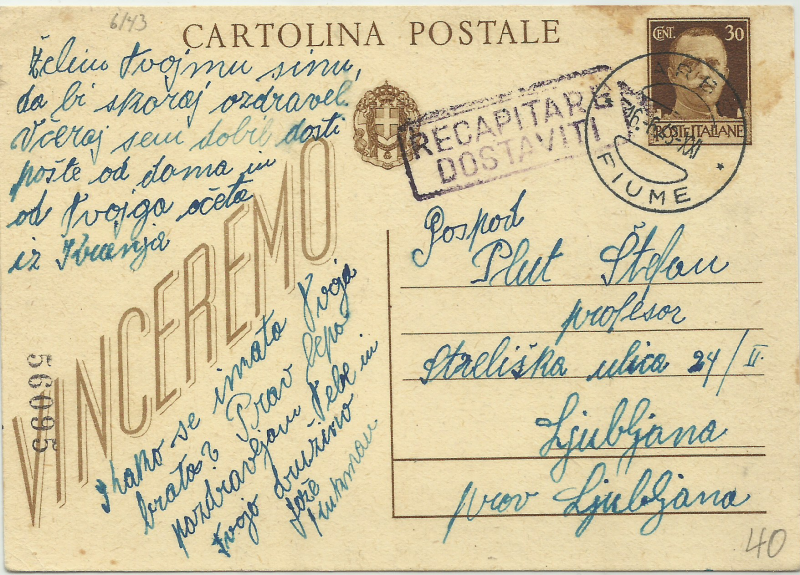 6/43
CARTOLINA POSTALE
CENT. 30
POSTE ITALIANE
RECAPITARE
DOSTAVITI
FIUME
Želim tvojmu sinu,
da bi skoraj ozdravel.
Včeraj sem dobil dosti
pošte od doma in
od tvojga očeta
iz Kranja
VINCEREMO
56095
kako se imata tvoja
brata? Prav lepo
pozdravljam tebe in
tvojo družino
Jože
Gospod
Plut Štefan
profesor
Streliška ulica 24/II.
Ljubljana
prov Ljubljana
40